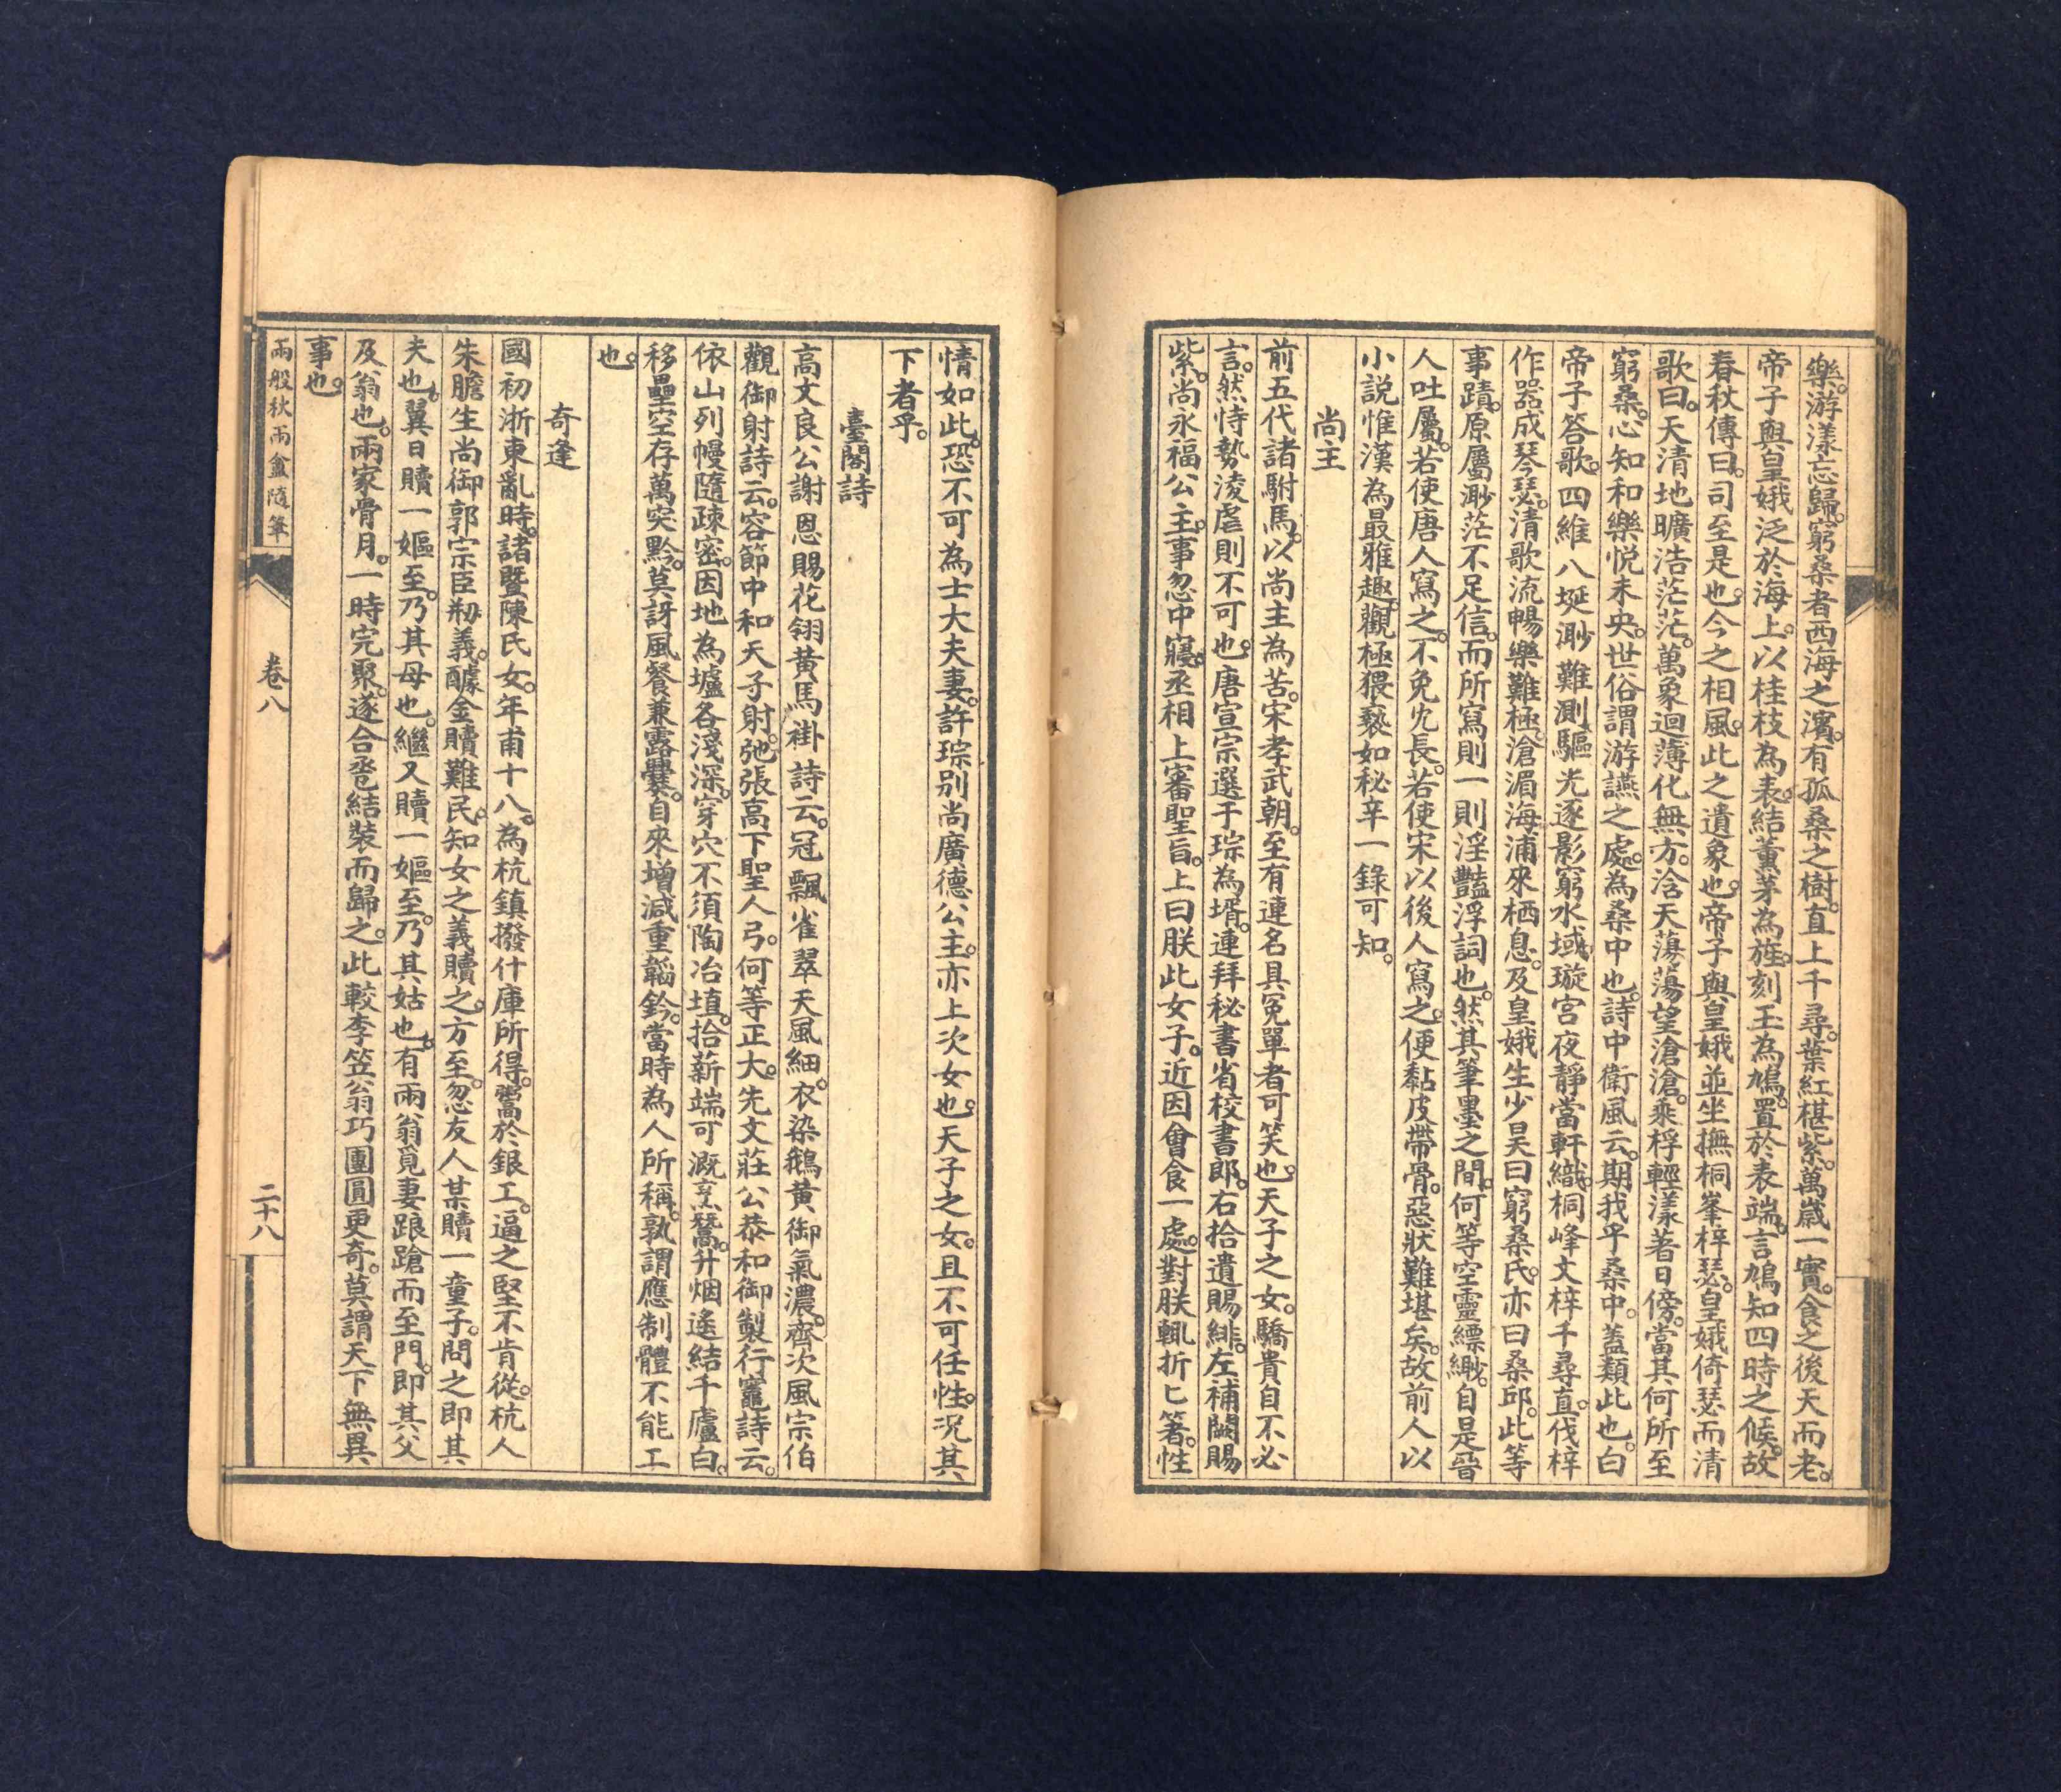 樂。游漾忘歸。窮桑者西海之濱。有孤桑之樹。直上千尋。葉紅椹紫。萬歲一實。食之後天而老。
帝子與皇娥泛於海上。以桂枝為表。結薰茅為旌。刻玉為鳩。置於表端。言鳩知四時之候。故
春秋傳曰。司至是也。今之相風。此之遺象也。帝子與皇娥並坐撫桐峯梓瑟。皇娥倚瑟而清
歌曰。天清地曠浩茫茫。萬象迴薄化無方。浛天蕩蕩望滄滄。乘桴輕漾著日傍。當其何所至
窮桑。心知和樂悅未央。世俗謂游讌之處。為桑中也。詩中衛風云。期我乎桑中。蓋類此也。白
帝子答歌。四維八埏渺難測。驅光逐影窮水域。璇宮夜靜當軒織。桐峰文梓千尋直。伐梓
作器成琴瑟。清歌流暢樂難極。滄湄海浦來栖息。及皇娥生少昊曰窮桑氏。亦曰桑邱。此等
事蹟。原屬渺茫不足信。而所寫則一則淫豔浮詞也。然其筆墨之間。何等空靈縹緲。自是晉
人吐屬。若使唐人寫之。不免冗長。若使宋以後人寫之。便黏皮帶骨。惡狀難堪矣。故前人以
小說惟漢為最雅趣。觀極猥褻如秘辛一錄可知。
尚主
前五代諸駙馬。以尚主為苦。宋孝武朝。至有連名具冤單者可笑也。天子之女。驕貴自不必
言。然恃勢淩虐則不可也。唐宣宗選于琮為壻。連拜秘書省校書郎。右拾遺賜緋。左補闕賜
紫。尚永福公主。事忽中寢。丞相上審聖旨。上曰朕此女子。近因會食一處。對朕輒折匕箸。性
情如此。恐不可為士大夫妻。許琮别尚廣德公主。亦上次女也。天子之女。且不可任性。況其
下者乎。
臺閣詩
高文良公謝恩賜花翎黃馬褂詩云。冠飄雀翠天風細。衣染鵝黃御氣濃。齊次風宗伯
觀御射詩云。容節中和天子射。弛張高下聖人弓。何等正大。先文莊公恭和御製行竈詩云。
依山列幔隨疎密。因地為壚各淺深。穿穴不須陶冶埴。拾薪端可溉烹鬵。升烟遙結千廬白。
移壘空存萬突黔。莫訝風餐兼露爨。自來增減重韜鈐。當時為人所稱。孰謂應制體不能工
也。
奇逢
國初浙東亂時。諸暨陳氏女。年甫十八。為杭鎮撥什庫所得。鬻於銀工。逼之堅不肯從。杭人
朱膽生尚御郭宗臣刱義。醵金贖難民。知女之義贖之。方至。忽友人某贖一童子。問之即其
夫也。翼日贖一嫗至。乃其母也。繼又贖一嫗至。乃其姑也。有兩翁覓妻踉蹌而至門。即其父
及翁也。兩家骨月。一時完聚。遂合卺結裝而歸之。此較李笠翁巧團圓更奇。莫謂天下無異
事也。
兩般秋雨盦隨筆
卷八
二十八